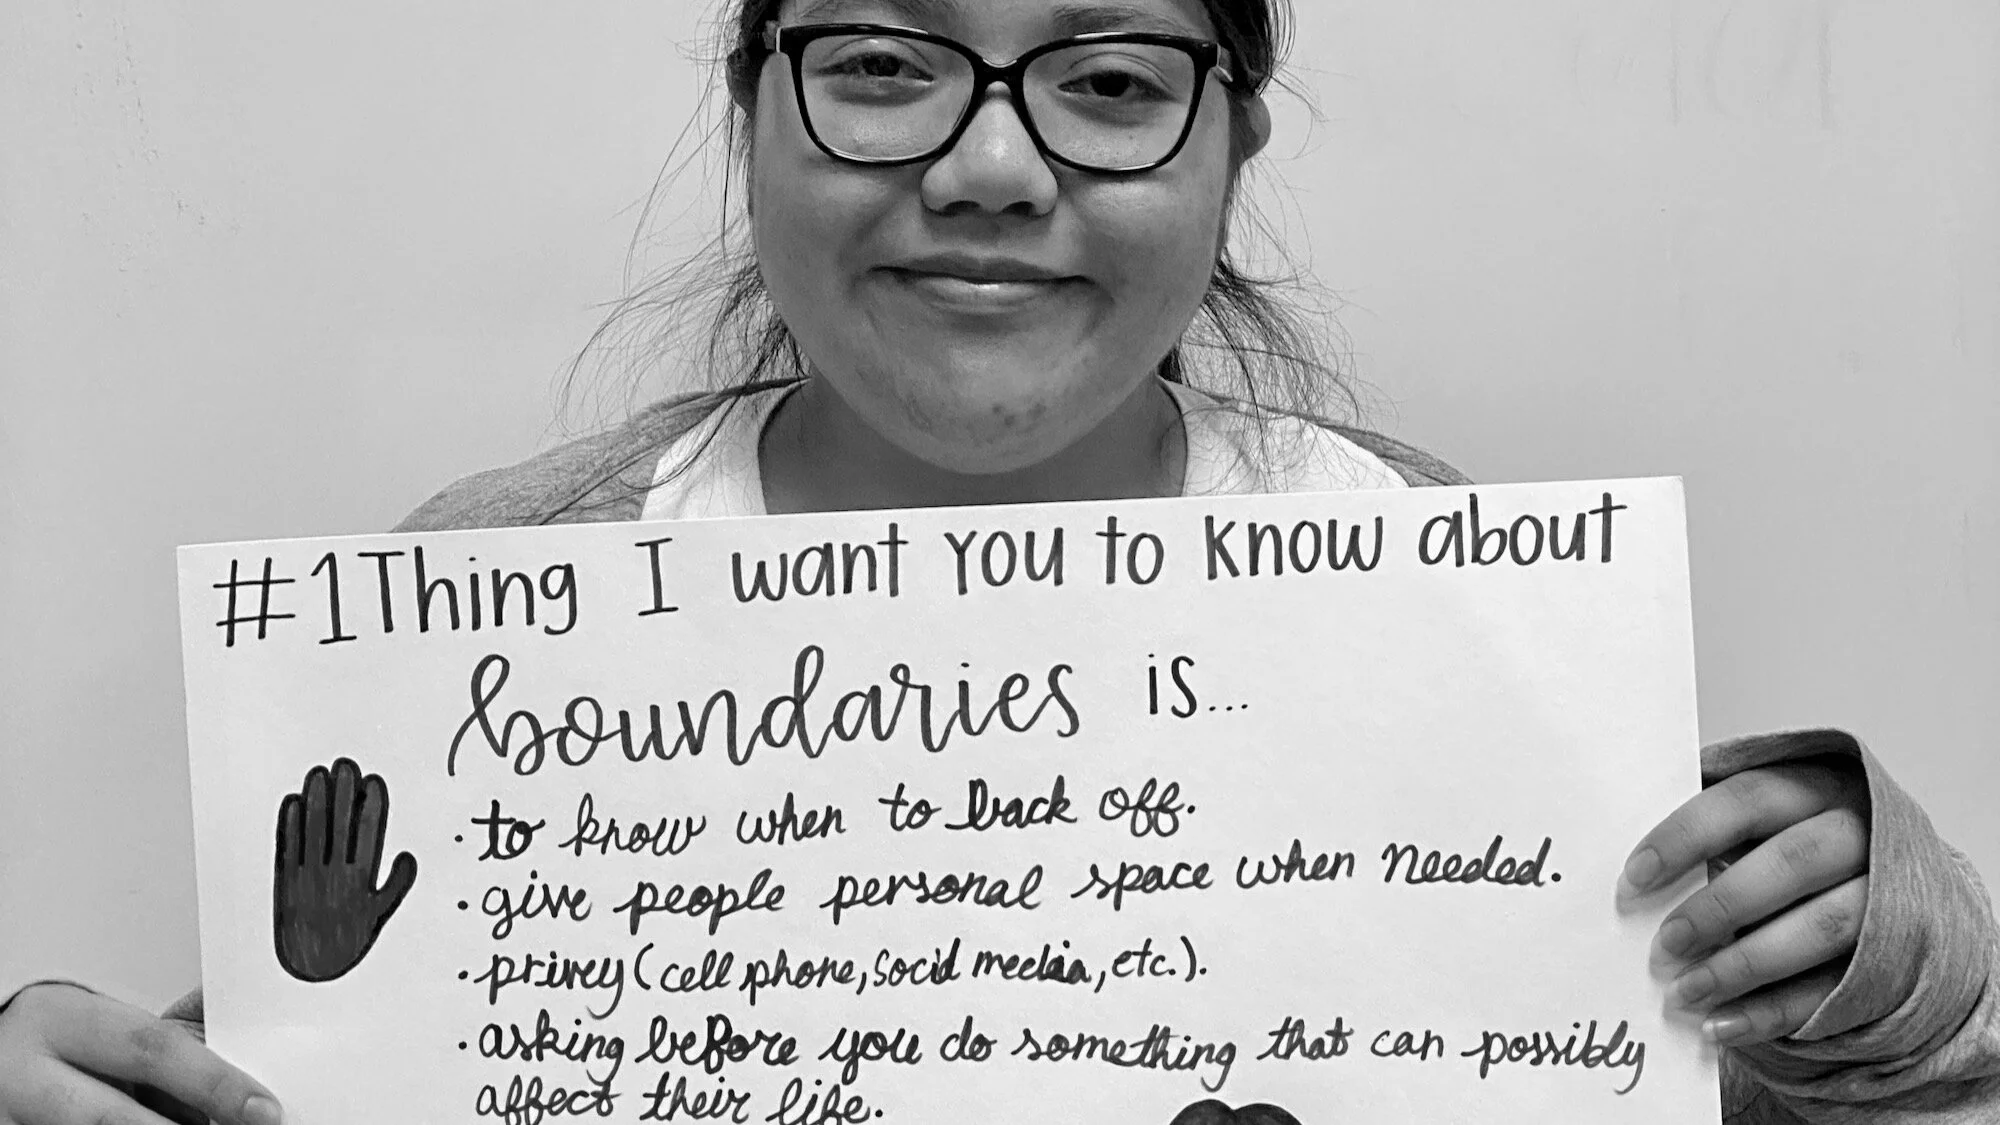 #1 Thing I want you to know about
boundaries is...
· to know when to back off.
· give people personal space when needed.
· privey (cell phone, socid media, etc.).
· asking before you do something that can possibly
affect their life.